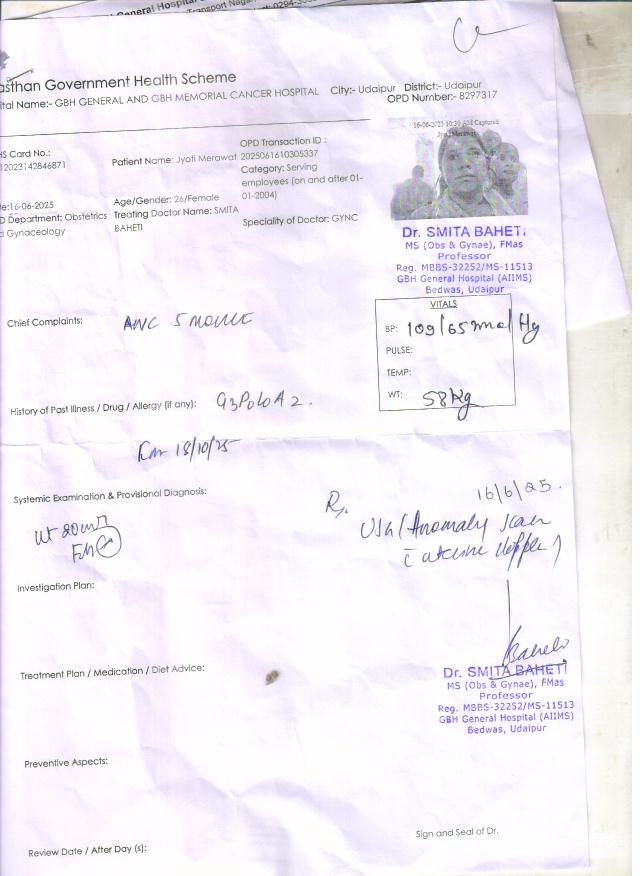 General Hospital
Transport Nagar
asthan Government Health Scheme
ital Name:- GBH GENERAL AND GBH MEMORIAL CANCER HOSPITAL City:- Udaipur District:- Udaipur
OPD Number:- 8297317
16-06-2025 10:30 AM Captured
Jyoti Merawat
HS Card No.:
12023142846871
Patient Name: Jyoti Merawat
OPD Transaction ID :
2025061610305337
Category: Serving
employees (on and after 01-
01-2004)
te:16-06-2025
D Department: Obstetrics
d Gynaceology
Age/Gender: 26/Female
Treating Doctor Name: SMITA
BAHETI
Speciality of Doctor: GYNC
Dr. SMITA BAHETI
MS (Obs & Gynae), FMas
Professor
Reg. MBBS-32252/MS-11513
GBH General Hospital (AIIMS)
Bedwas, Udaipur
VITALS
BP: 109/65 mm/Hg
PULSE:
TEMP:
WT: 58kg
Chief Complaints: ANC 5 month
History of Past Illness / Drug / Allergy (if any): G3P0L0A2.
18/10/25
Systemic Examination & Provisional Diagnosis:
Ut 20wk
FHS
Rx
16/6/25.
USG (Anomaly scan
c uterine doppler)
Investigation Plan:
Baheti
Treatment Plan / Medication / Diet Advice:
Dr. SMITA BAHETI
MS (Obs & Gynae), FMas
Professor
Reg. MBBS-32252/MS-11513
GBH General Hospital (AIIMS)
Bedwas, Udaipur
Preventive Aspects:
Sign and Seal of Dr.
Review Date / After Day (s):